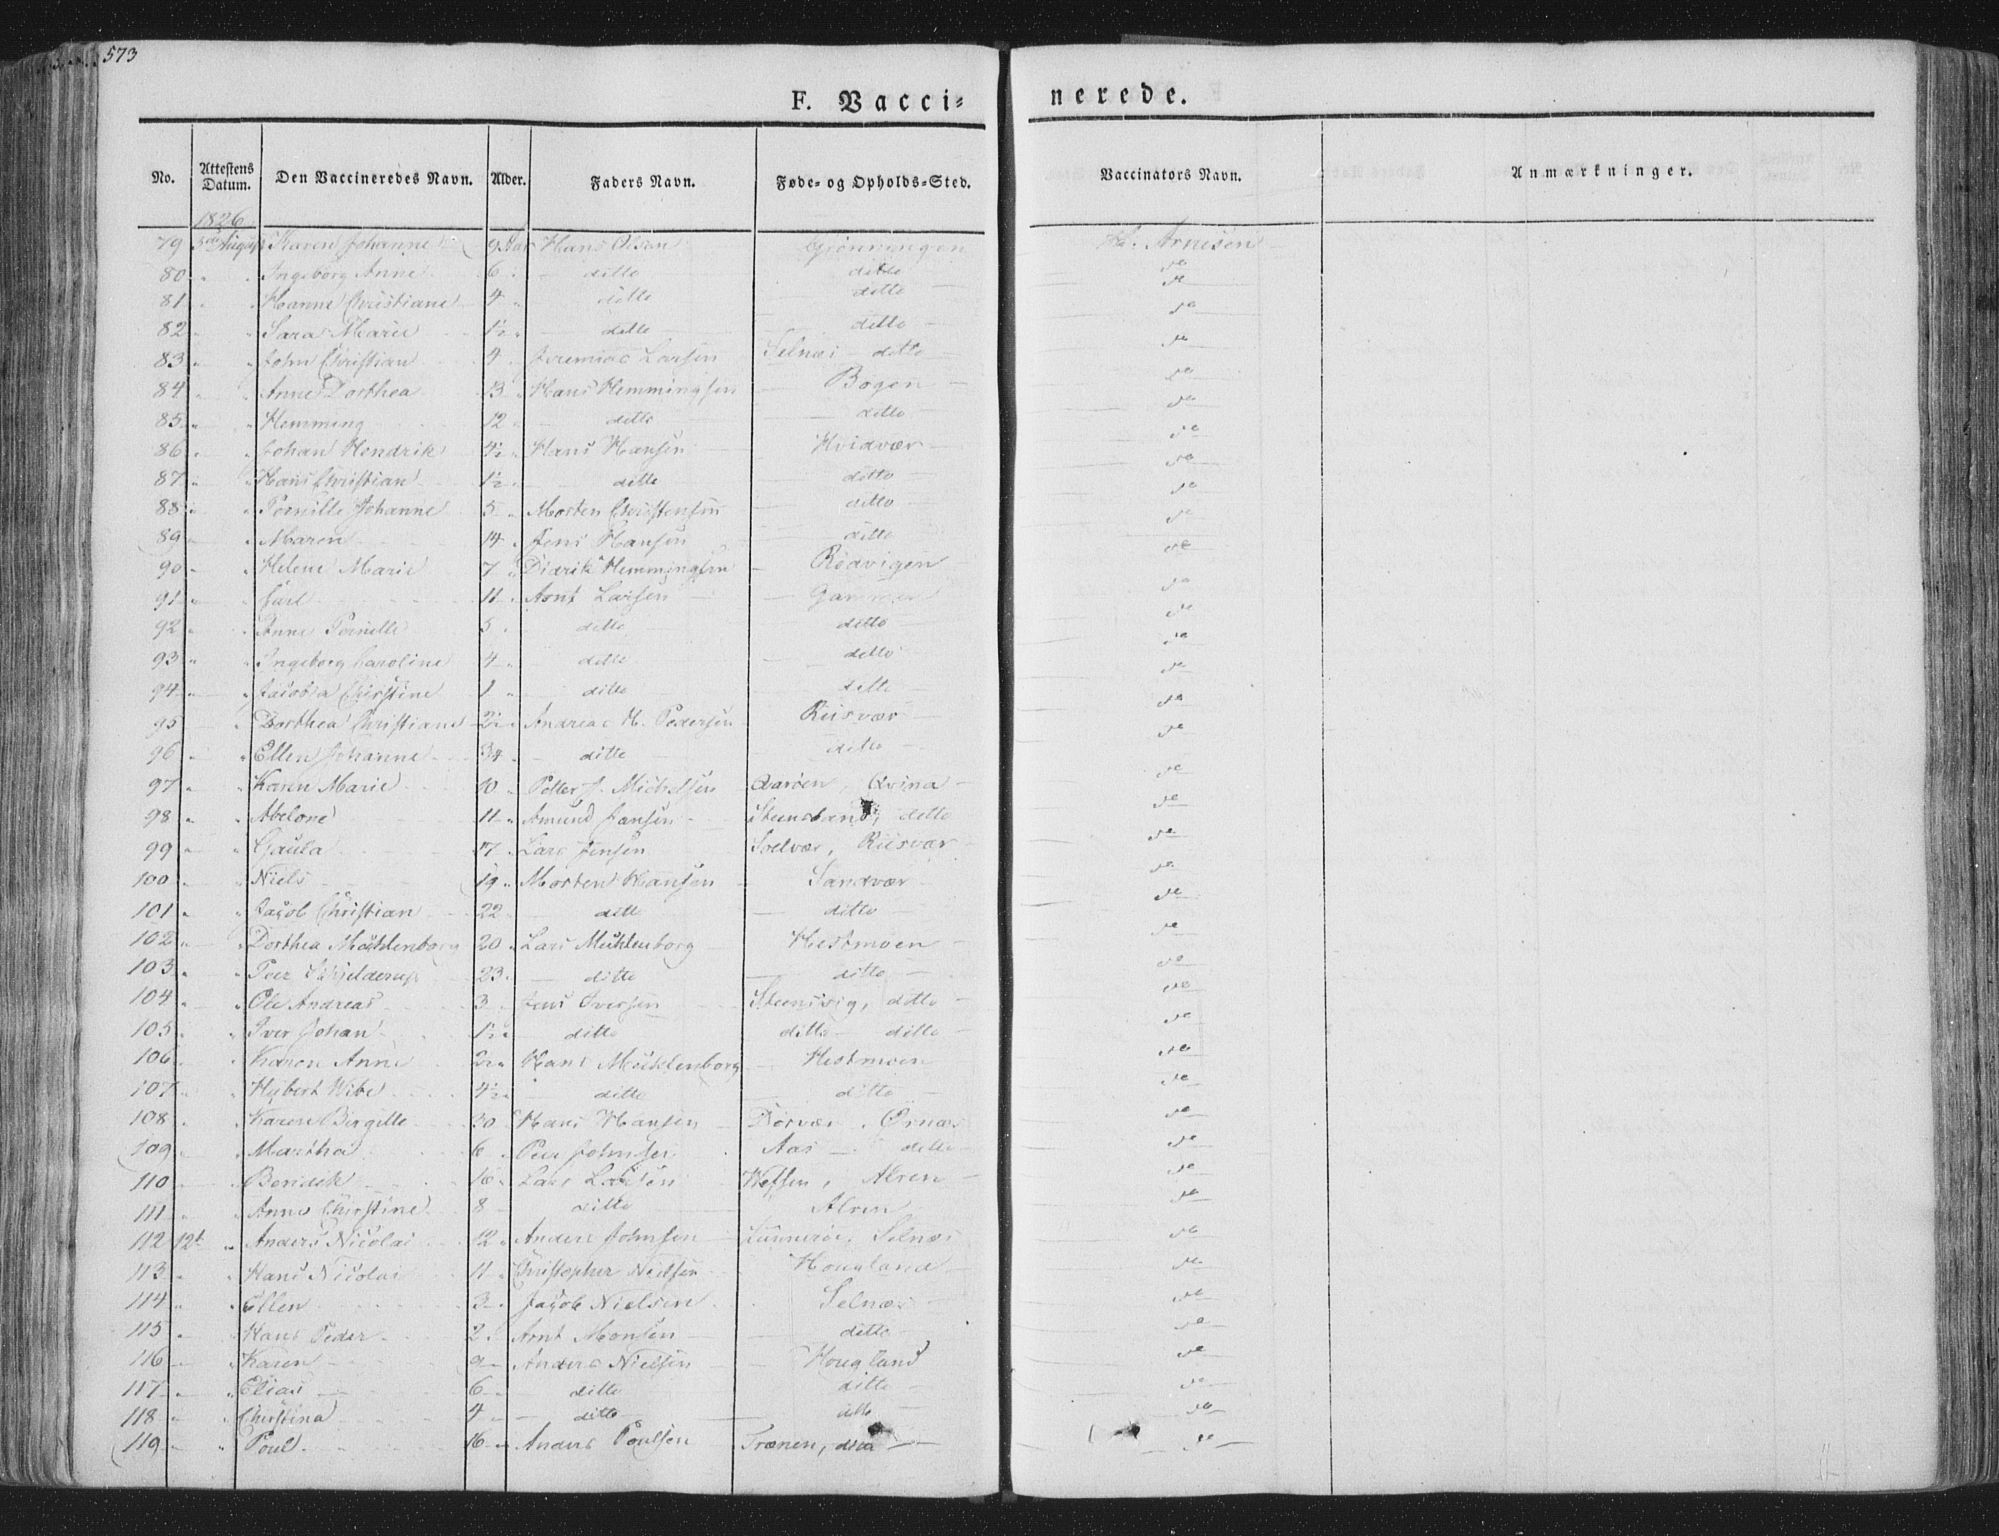 573
F. Vacci-nerede.
No. Attestens Datum. Den Vaccineredes Navn. Alder. Faders Navn. Føde- og Opholds-Sted. Vaccinators Navn. Anmærkninger.
1826
79 5te August Karen Johanne 9 Aar Hans Olsen Grønningen Arnesen
80 " " Ingeborg Anne 6 " ditto ditto
81 " " Hanne Christiane 4 " ditto ditto
82 " " Sara Marie 1½ " ditto ditto
83 " " John Christian 4 " Jeremias Larsen Selnæs ditto
84 " " Anne Dorthea 13 " Hans Hemmingsen Bogen
85 " " Hemming 12 " ditto ditto
86 " " Johan Hendrik 4½ " Hans Hansen Hvidvær
87 " " Hans Christian 1½ " ditto ditto
88 " " Pernille Johanne 5 " Morten Christensen ditto
89 " " Maren 14 " Jens Hansen ditto
90 " " Helene Marie 7 " Didrik Hemmingsen Rødvigen
91 " " Carl 11 " Arnt Larsen
92 " " Anne Pernille 5 " ditto ditto
93 " " Ingeborg Caroline 4 " ditto ditto
94 " " Jacobia Christine 1 " ditto ditto
95 " Dorthea Christiane 2½ " Andreas H. Pedersen Riisvær
96 " " Ellen Johanne ditto ditto
97 " " Karen Marie 10 " Petter J. Michelsen Qvarøen, Qvina
98 " " Abelone 11 " Amund Jansen Steensland, ditto
99 " " Gjaula 17 " Lars Jensen Selvær, Riisvær
100 " " Niels 19 " Morten Hansen Sandvær
101 " " Jacob Christian 22 " ditto ditto
102 " " Dorthea Mechlenborg 20 " Lars Mechlenborg Hestmoen
103 " " Peer Schjelderup 23 " ditto ditto
104 " " Ole Andreas 3 " Jens Iversen Steensvig, ditto
105 " " Iver Johan 1½ " ditto ditto ditto
106 " " Karen Anne 2½ " Hans Mechlenborg Hestmoen
107 " " Hybert Wibe 4½ " ditto ditto
108 " " Karen Birgitte 30 " Hans Hansen Dørvær, Ørnæs
109 " " Martha 6 " Peer Johnsen Aas ditto
110 " " Bendik 16 " Lars Larsen Wefsen, Alren
111 " " Anne Christine 8 " ditto Alren
112 12te " Anders Nicolai 12 " Anders Johnsen Selnæs
113 " " Hans Nicolai 11 " Christopher Nielsen Hougland
114 " " Ellen 3 " Jacob Nielsen Selnæs
115 " " Hans Peder 2 " Arnt Monsen ditto
116 " " Karen 9 " Anders Nielsen Hougland
117 " " Elias 6 " ditto ditto
118 " " Christina 4 " ditto ditto
119 " " Poul 16 " Anders Poulsen Trænen, ditto